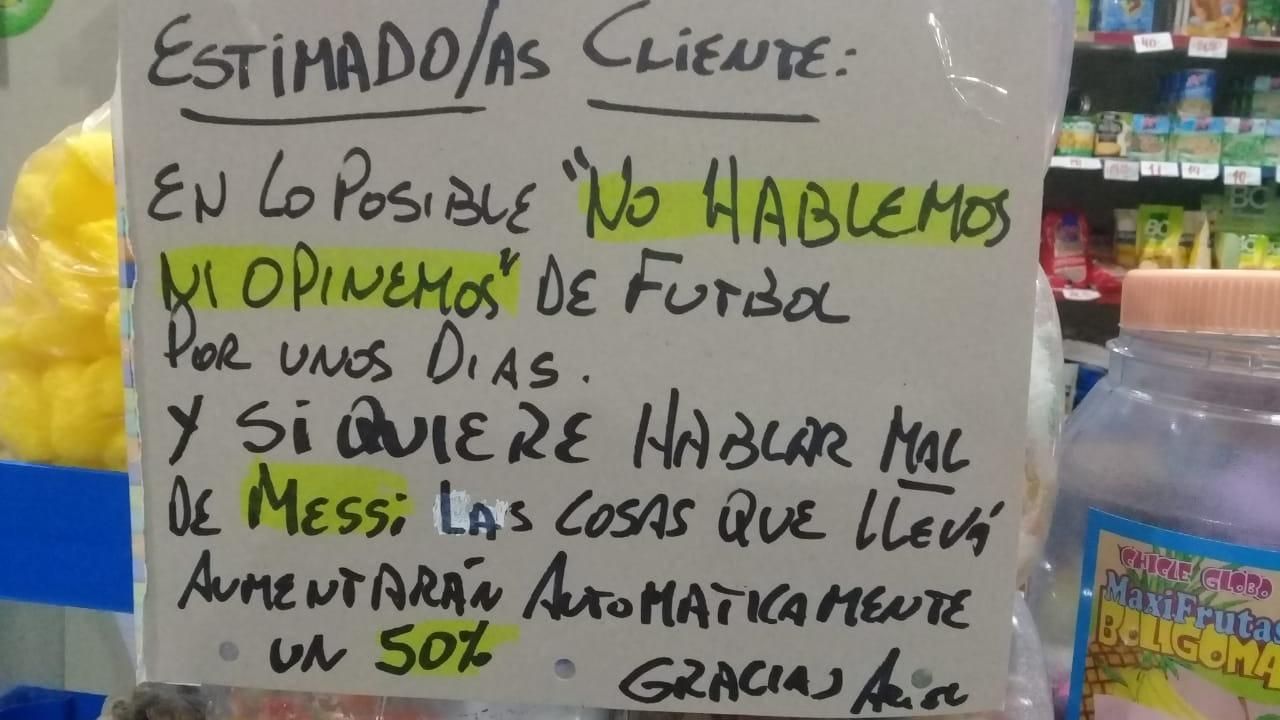 ESTIMADO/AS CLIENTE:
EN LO POSIBLE "NO HABLEMOS
NI OPINEMOS" DE FUTBOL
POR UNOS DIAS.
Y SI QUIERE HABLAR MAL
DE MESSI LAS COSAS QUE LLEVÁ
AUMENTARÁN AUTOMATICAMENTE
UN 50%
GRACIAS
CHICLE GLOBO
MaxiFrutas
BOLIGOMA